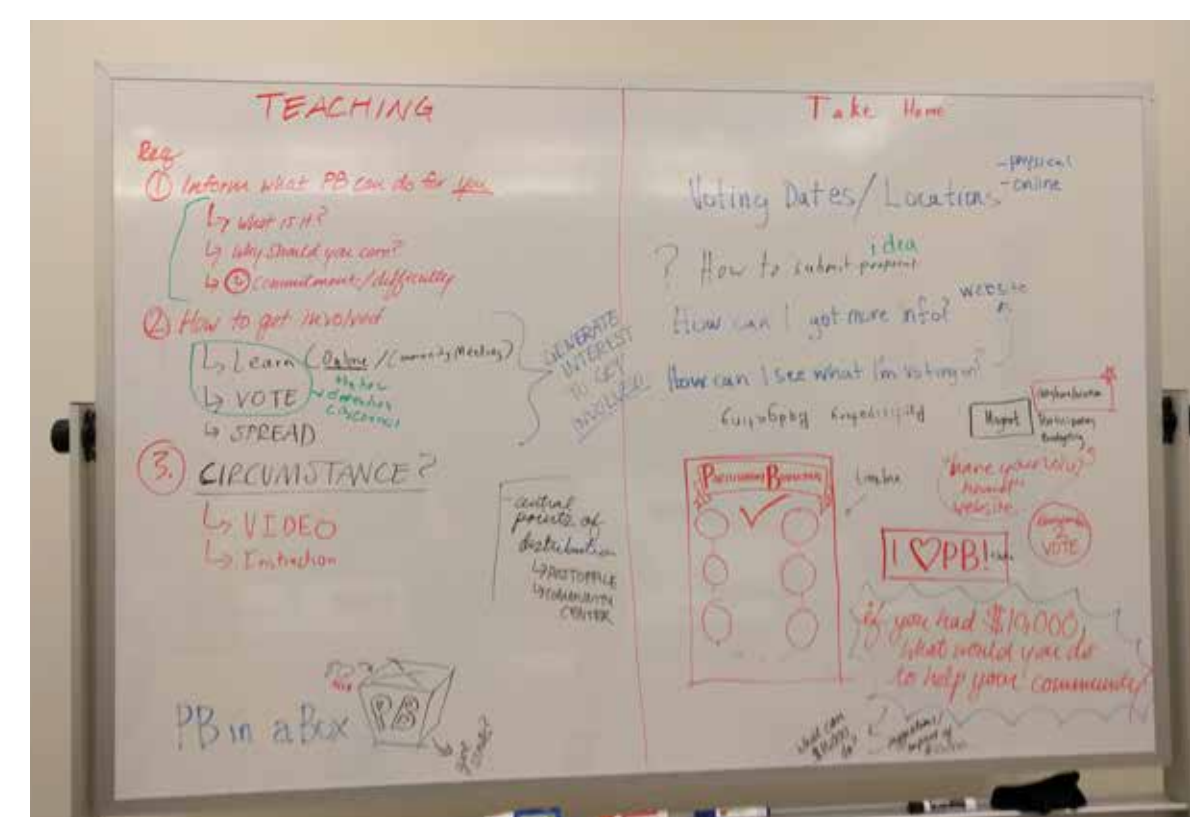 TEACHING
Req
① Inform what PB can do for you
↳ What is it?
↳ Why should you care?
↳ ② Commitment/difficulty
② How to get involved
↳ Learn (Online / Community Meetings)
↳ VOTE
↳ SPREAD
GENERATE
INTEREST
TO GET
INVOLVED
3. CIRCUMSTANCE?
↳ VIDEO
↳ Instruction
central
points of
distribution
↳ POST OFFICE
↳ COMMUNITY
CENTER
PB in a Box
PB
Take Home
Voting Dates/Locations
-physical
-online
? How to submit proposal
idea
How can I get more info?
website
How can I see what I'm voting on?
Participatory Budgeting
Magnet
Participatory
Budgeting
PARTICIPATORY BUDGETING
"have your voice
heard"
website
2
VOTE
I ♡ PB!
if you had $10,000,
what would you do
to help your community
what can
$10,000
do?